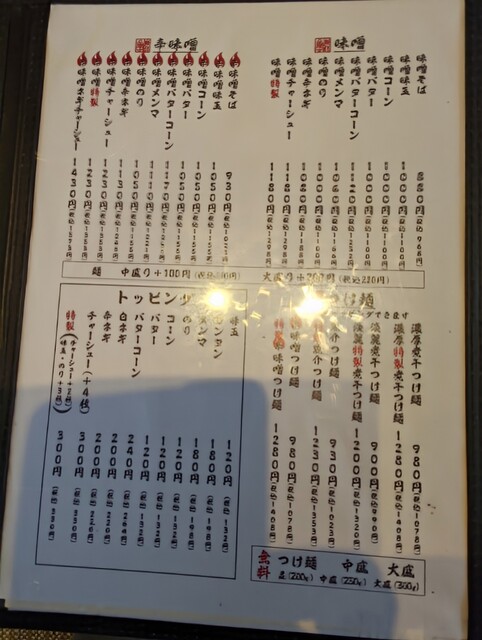 味噌
味噌そば 880円(税込968円)
味噌味玉 1000円(税込1100円)
味噌コーン 1000円(税込1100円)
味噌バター 1000円(税込1100円)
味噌バターコーン
味噌メンマ
味噌のり
味噌辛ネギ
味噌チャーシュー 1180円(税込1298円)
味噌特製 1180円(税込1298円)
辛味噌
味噌そば 930円(税込1023円)
味噌味玉 1050円(税込1155円)
味噌コーン 1050円(税込1155円)
味噌バター 1050円(税込1155円)
味噌バターコーン 1170円
味噌メンマ
味噌のり 1050円(税込1155円)
味噌辛ネギ 1130円
味噌チャーシュー 1230円(税込1353円)
味噌特製 1230円(税込1353円)
味噌ネギチャーシュー 1430円(税込1573円)
麺 中盛り+100円(税込110円) 大盛り+200円(税込220円)
つけ麺
濃厚煮干つけ麺 980円(税込1078円)
濃厚特製煮干つけ麺 1280円(税込1408円)
淡麗煮干つけ麺 900円(税込990円)
淡麗特製煮干つけ麺 1200円(税込1320円)
介つけ麺 930円(税込1023円)
介つけ麺 1230円(税込1353円)
味噌つけ麺 980円(税込1078円)
味噌つけ麺 1280円(税込1408円)
無料 つけ麺 中盛 大盛
並(200g) 中盛(250g) 大盛(300g)
トッピング
味玉 120円(税込132円)
ンタン 180円(税込198円)
メンマ 180円(税込198円)
のり 120円(税込132円)
コーン 120円(税込132円)
バター 120円(税込132円)
バターコーン 240円(税込264円)
白ネギ 200円(税込220円)
辛ネギ 200円(税込220円)
チャーシュー(+4枚) 300円(税込330円)
特製(チャーシュー+2枚 味玉・のり+3枚) 300円(税込330円)